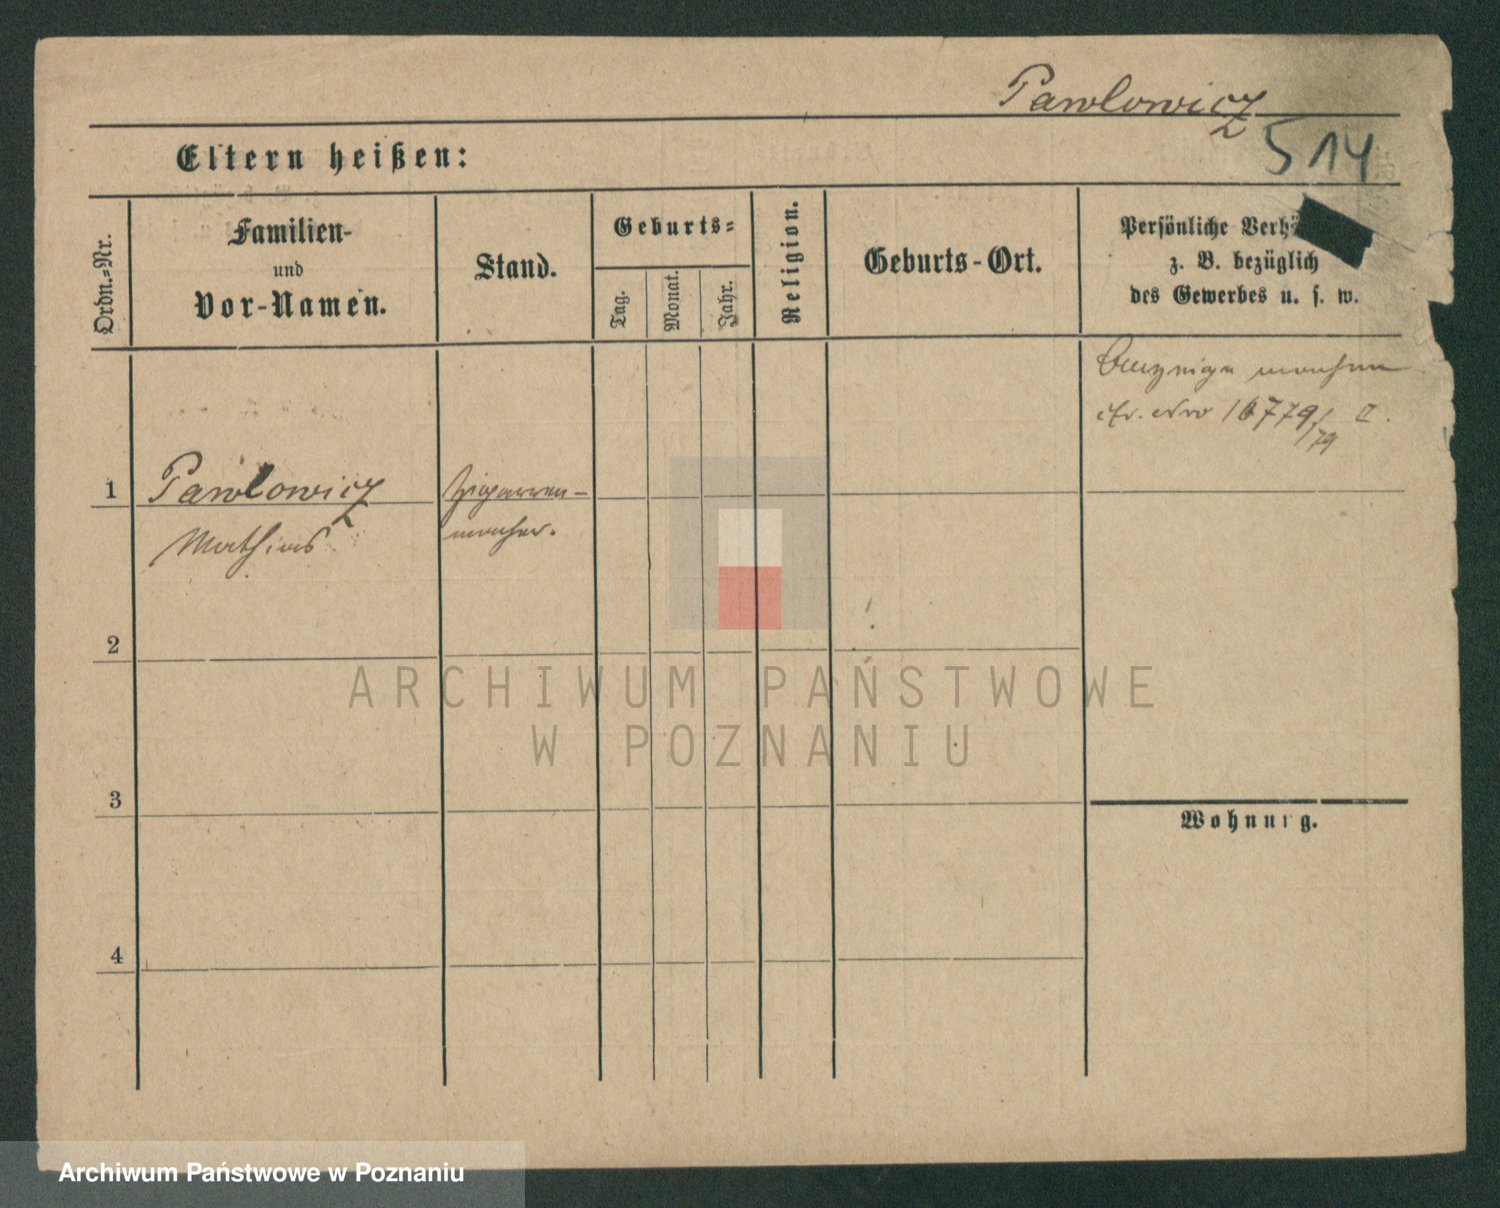 Pawlowicz
514
Eltern heißen:
Ordn.-Nr.
Familien-
und
Vor-Namen.
Stand.
Geburts-
Tag.
Monat.
Jahr.
Religion.
Geburts-Ort.
Persönliche Verh
z. B. bezüglich
des Gewerbes u. s. w.
cfr. 16779/79 II.
1
Pawlowicz
Mathias
Zigarren-
macher.
2
3
4
Wohnung.
ARCHIWUM PAŃSTWOWE
W POZNANIU
Archiwum Państwowe w Poznaniu